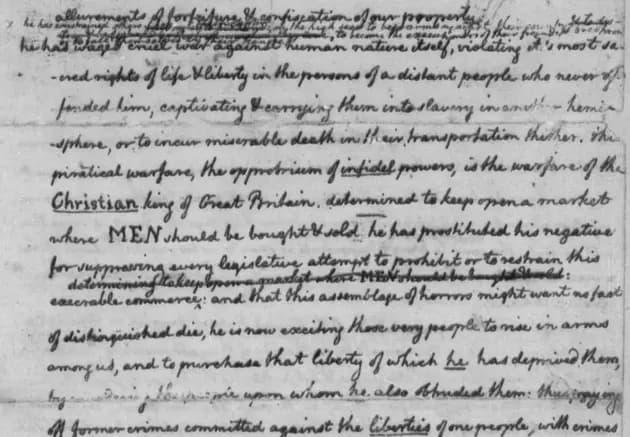 allurements of forfeiture & confiscation of our property
he has
he has waged cruel war against human nature itself, violating it's most sa-
-cred rights of life & liberty in the persons of a distant people who never of-
fended him, captivating & carrying them into slavery in another hemi-
-sphere, or to incur miserable death in their transportation thither. this
piratical warfare, the opprobrium of infidel powers, is the warfare of the
Christian king of Great Britain. determined to keep open a market
where MEN should be bought & sold he has prostituted his negative
for suppressing every legislative attempt to prohibit or to restrain this
determining to keep open a market where MEN should be bought & sold:
execrable commerce: and that this assemblage of horrors might want no fact
of distinguished die, he is now exciting those very people to rise in arms
among us, and to purchase that liberty of which he has deprived them,
upon whom he also obtruded them: thus paying
off former crimes committed against the liberties of one people, with crimes